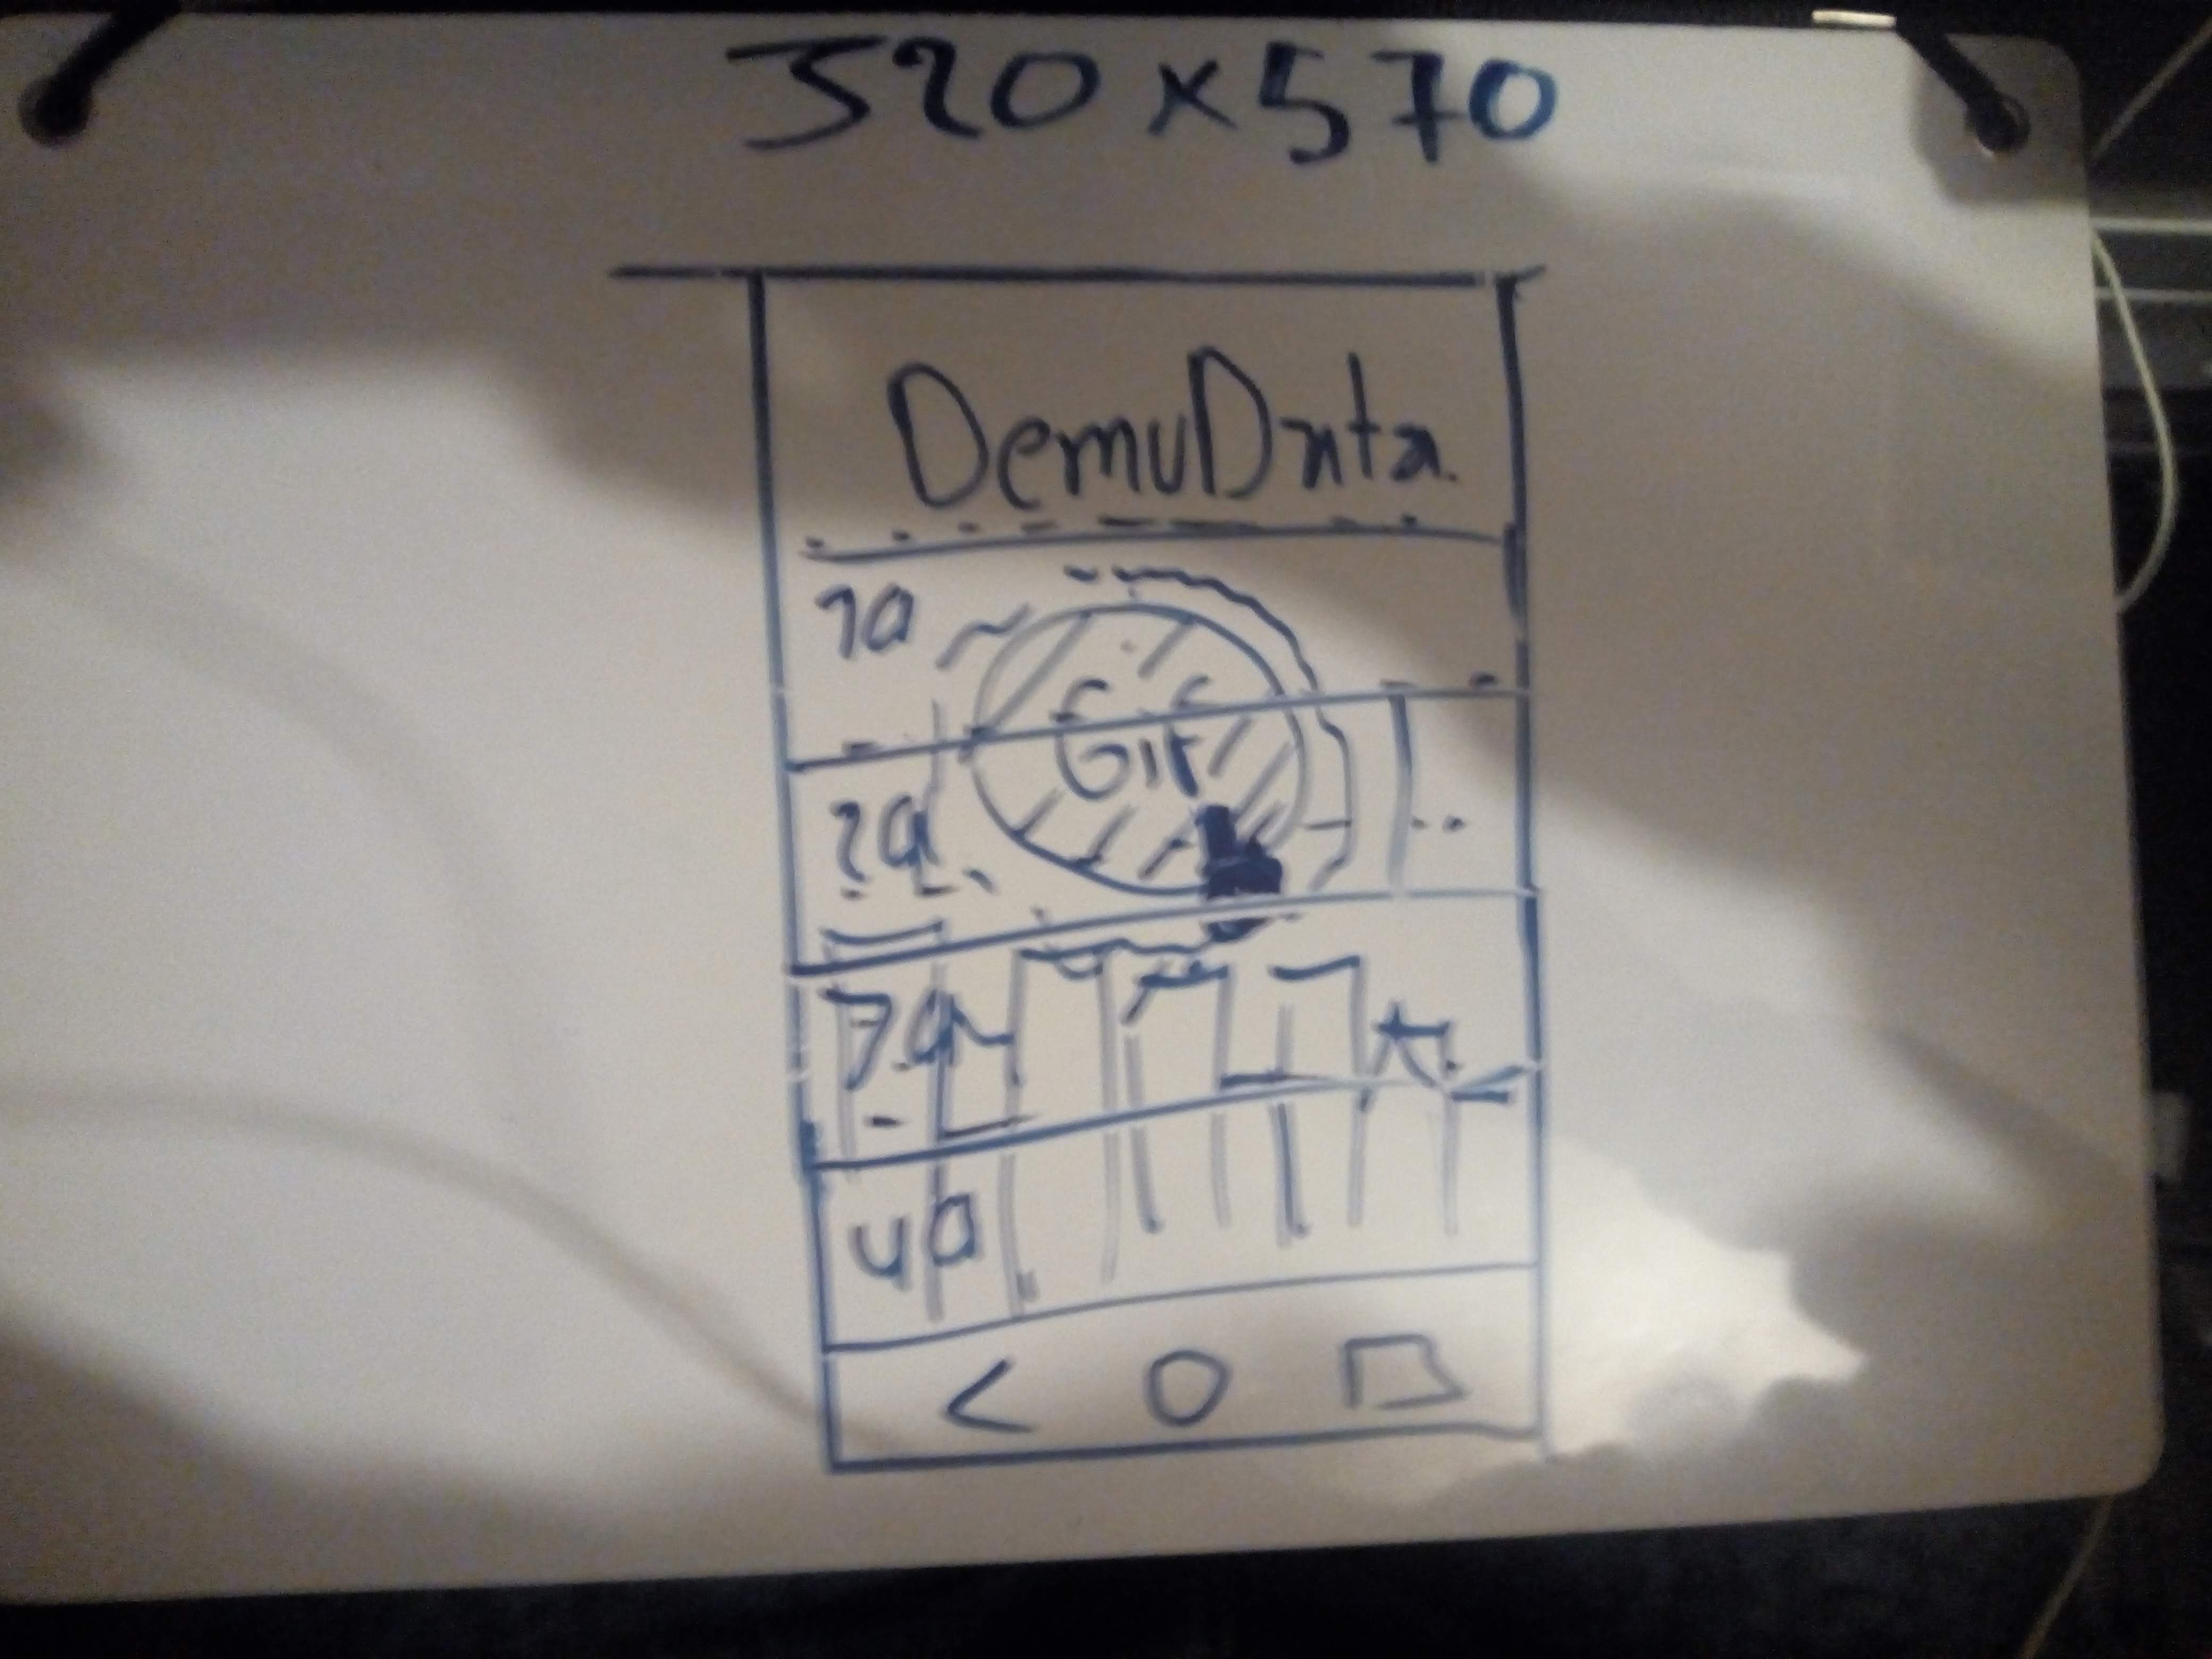 320 x 570
DemoData.
1a
Gif
2a
3a
4a